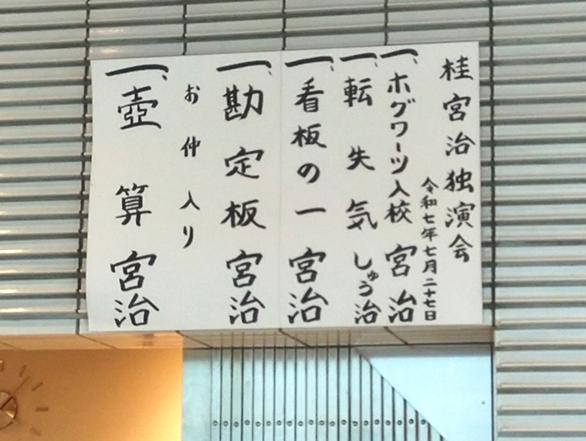 桂宮治独演会
令和七年七月二十七日
一、ホグワーツ入校 宮治
一、転失気 しゅう治
一、看板の一 宮治
一、勘定板 宮治
お仲入り
一、壺算 宮治